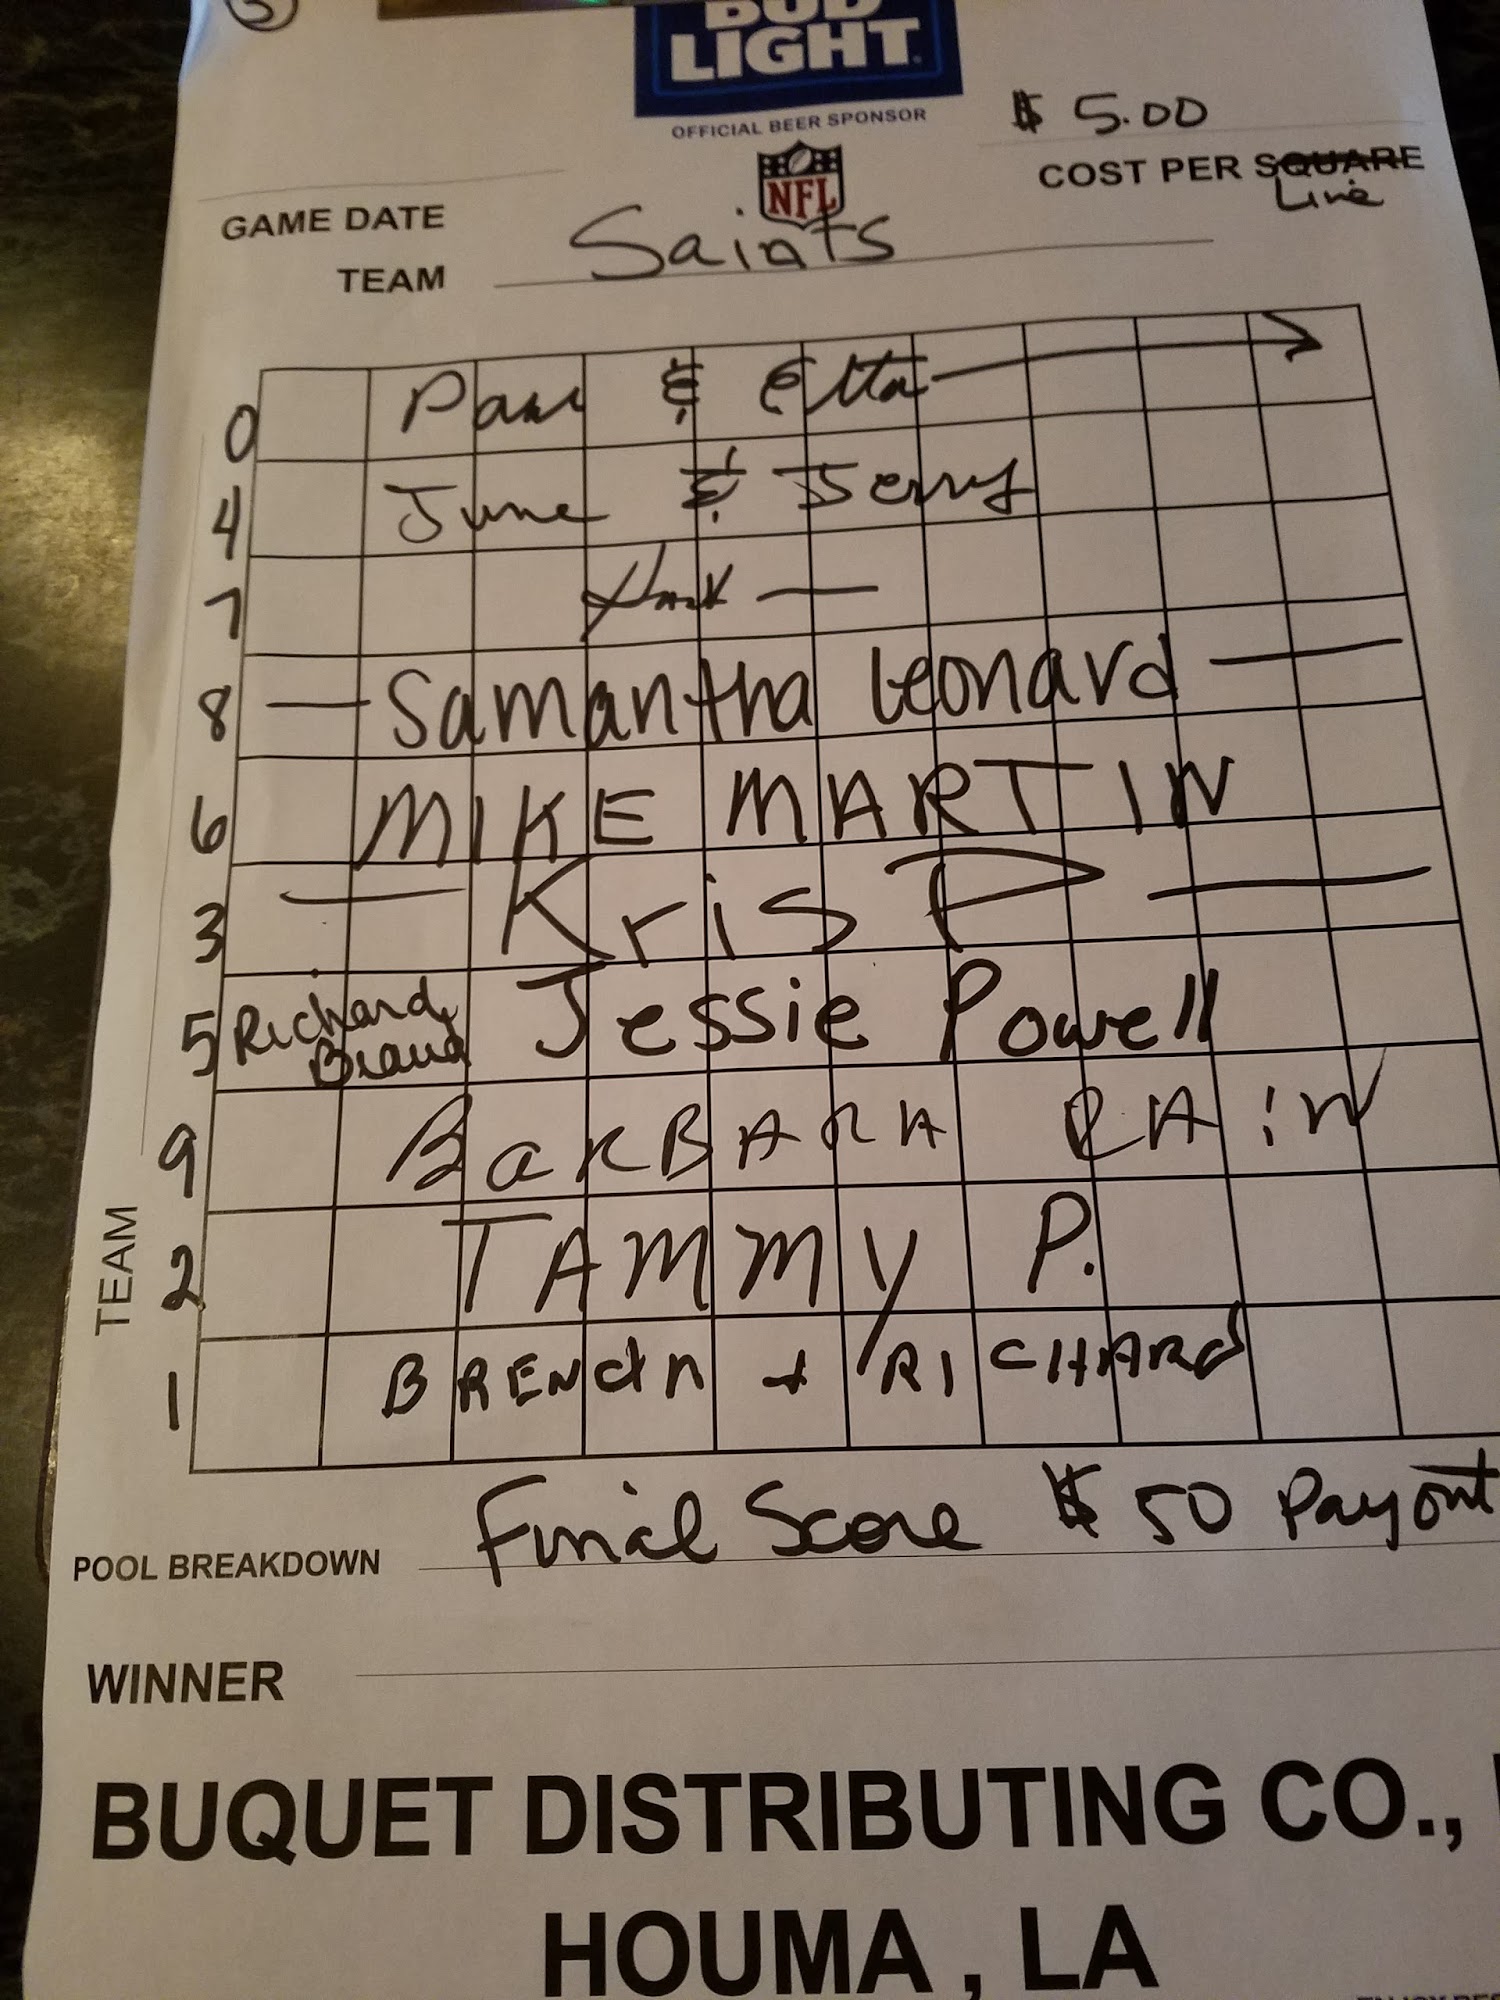 BUD
LIGHT
OFFICIAL BEER SPONSOR
$ 5.00
COST PER SQUARE
Line
NFL
GAME DATE
TEAM Saints
0 Pam & Etta
4 June & Jerry
7
8 Samantha Leonard
6 MIKE MARTIN
3 Kris P
5 Richard Jessie Powell
9 BARBARA RAIN
2 TAMMY P.
1 BRENdA + RICHARd
TEAM
POOL BREAKDOWN Final Score $ 50 Payout
WINNER
BUQUET DISTRIBUTING CO.,
HOUMA , LA